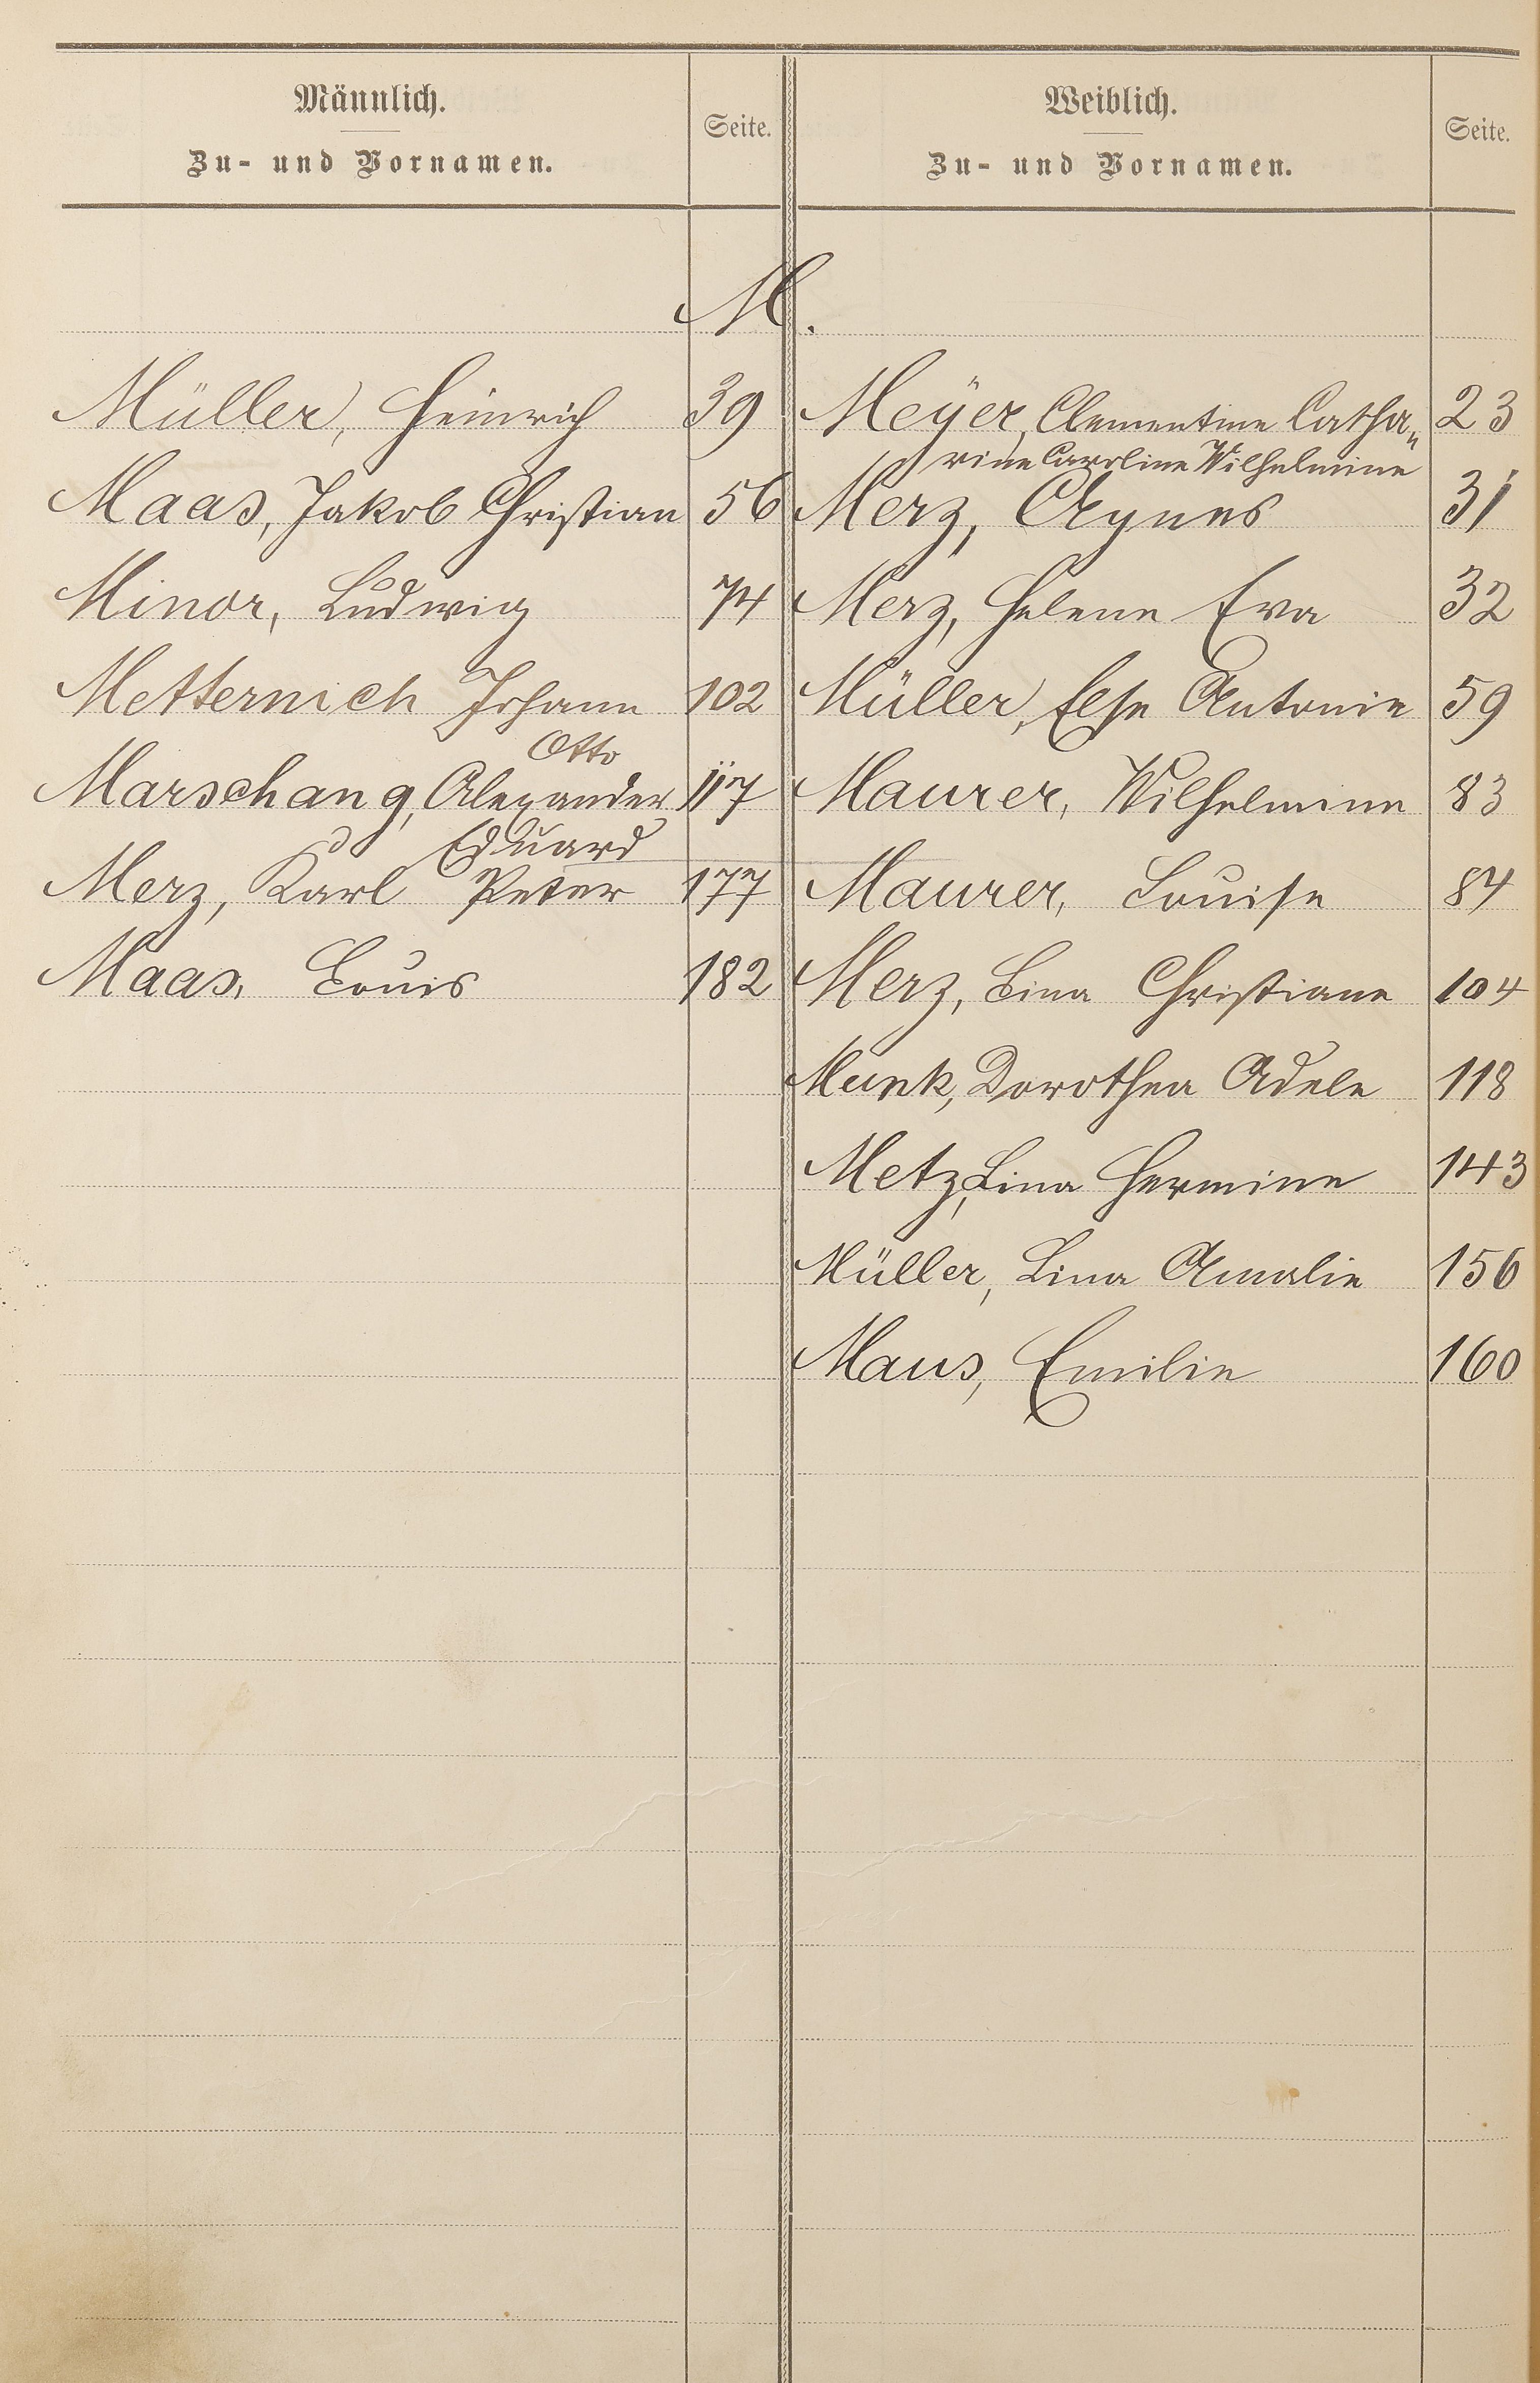 Männlich.
Zu- und Vornamen.
Seite.
Weiblich.
Zu- und Vornamen.
Seite.
M.
Müller, Heinrich 39
Maas, Jakob Christian 56
Minor, Ludwig 74
Metternich Johann 102
Otto
Marschang, Alexander 117
Eduard
Merz, Karl Peter 177
Maas, Louis 182
Meÿer, Clementine Catha„ 23
rine Caroline Wilhelmine
Merz, Agnes 31
Merz, Helene Eva 32
Müller, Else Antonie 59
Maurer, Wilhelmine 83
Maurer, Louise 84
Merz, Lina Christiane 104
Munk, Dorothea Adele 118
Metz, Lina Hermine 143
Müller, Lina Amalie 156
Maus, Emilie 160